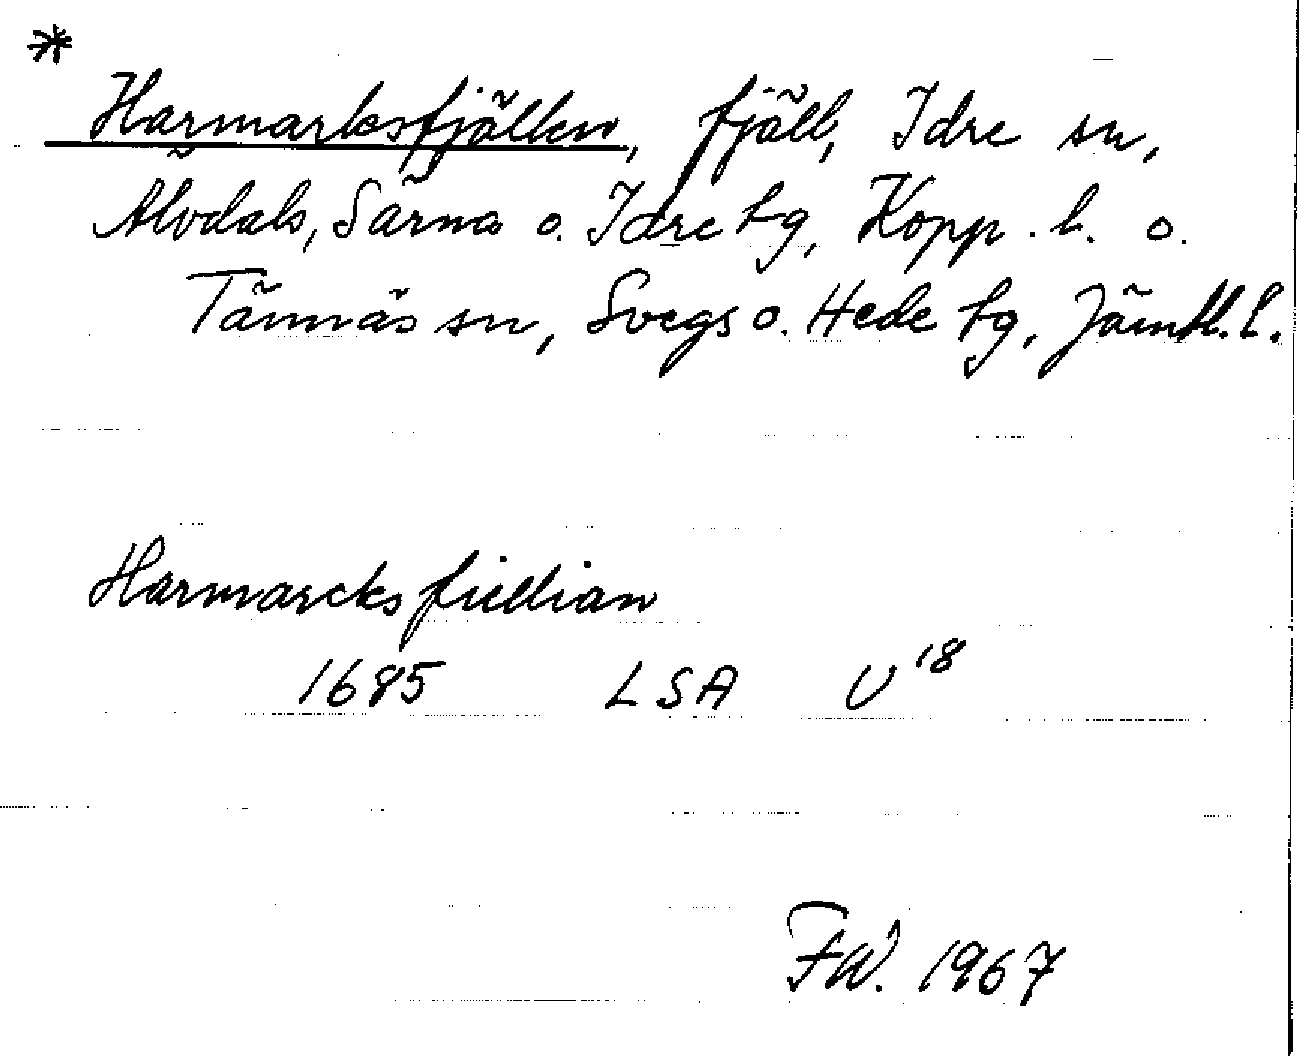 *
Harmarksfjällen, fjäll, Idre sn,
Älvdals, Särna o. Idre tg, Kopp. l. o.
Tännäs sn, Svegs o. Hede tg, Jämtl. l.
Harmarcksfiellian
1685 LSA U¹⁸
FW. 1967